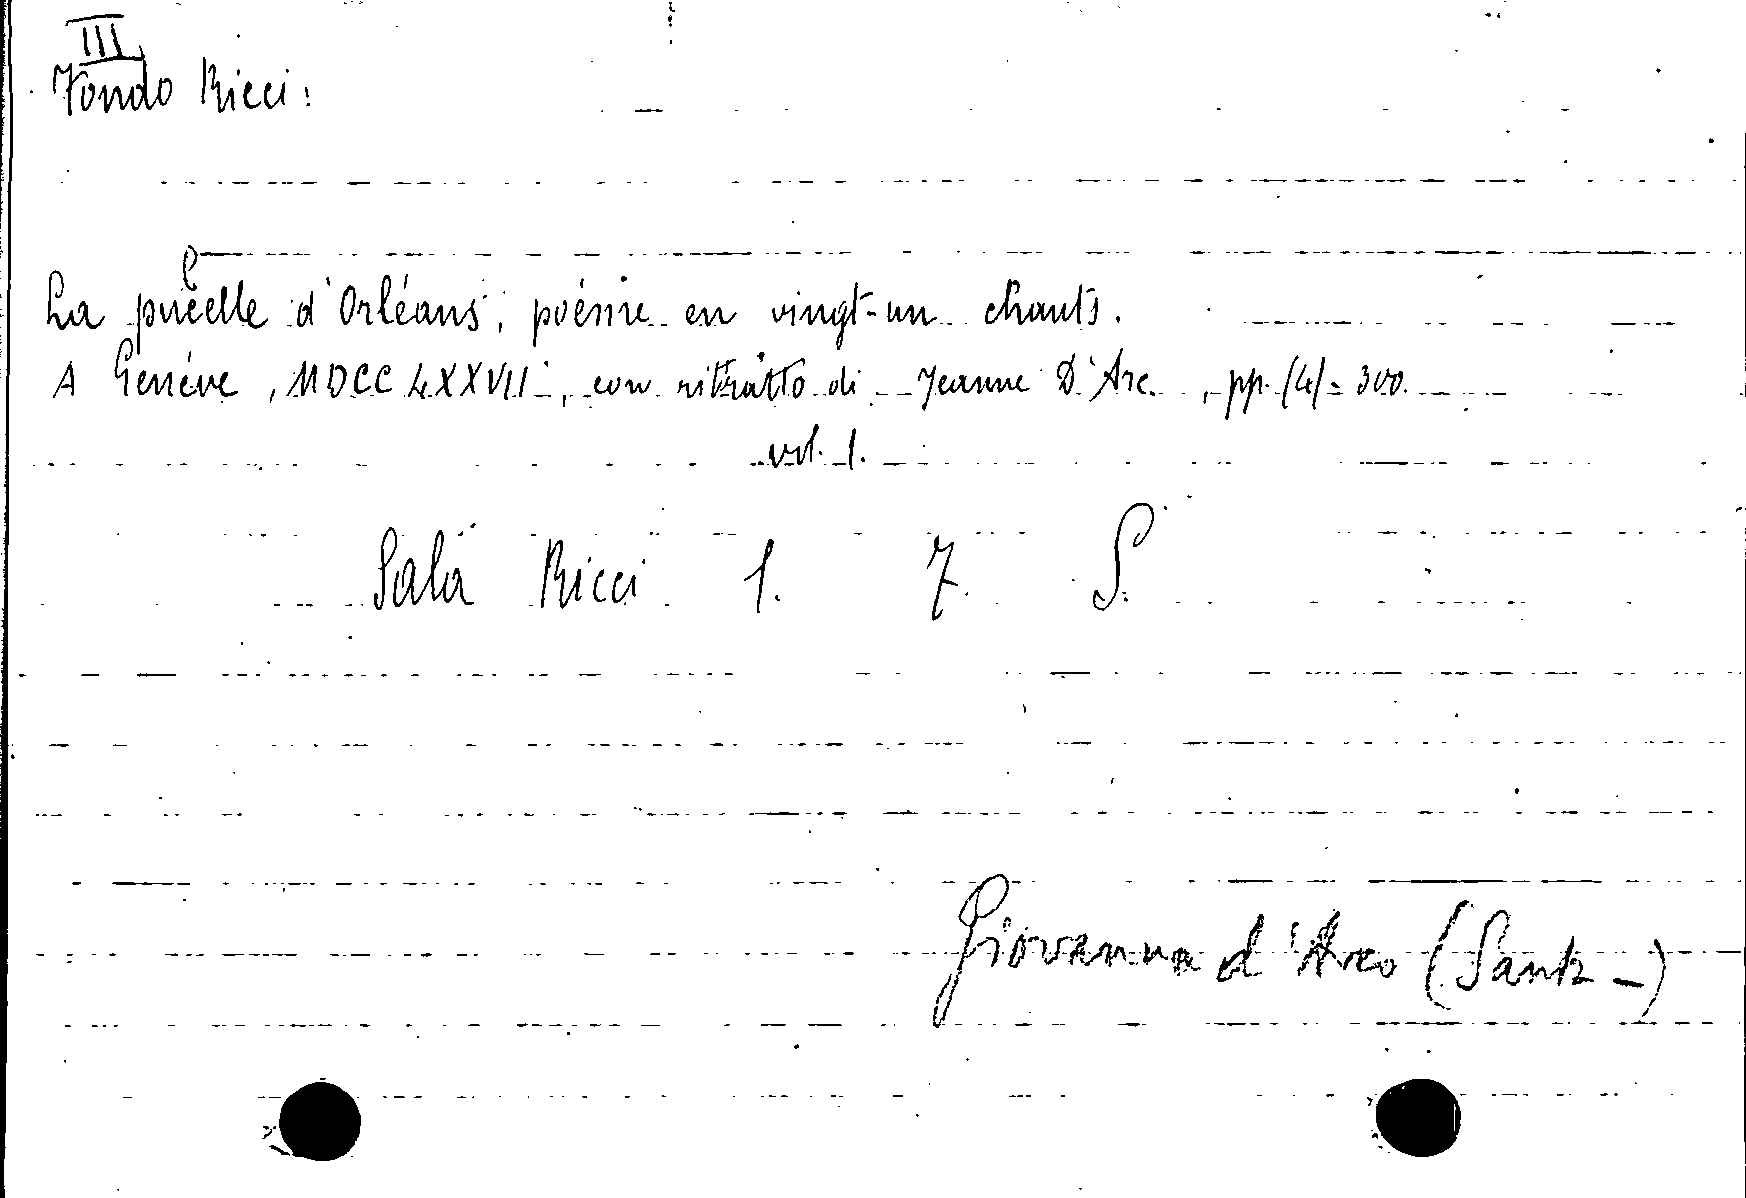 III
Fondo Ricci:
La pucelle d'Orléans, poéme en vingt-un chants.
A Genéve, MDCCLXXVII, con ritratto di Jeanne D'Arc, pp. (4)-300.
vol. 1.
Sala Ricci 1. 7. S.
Giovanna d'Arco (Santa -)